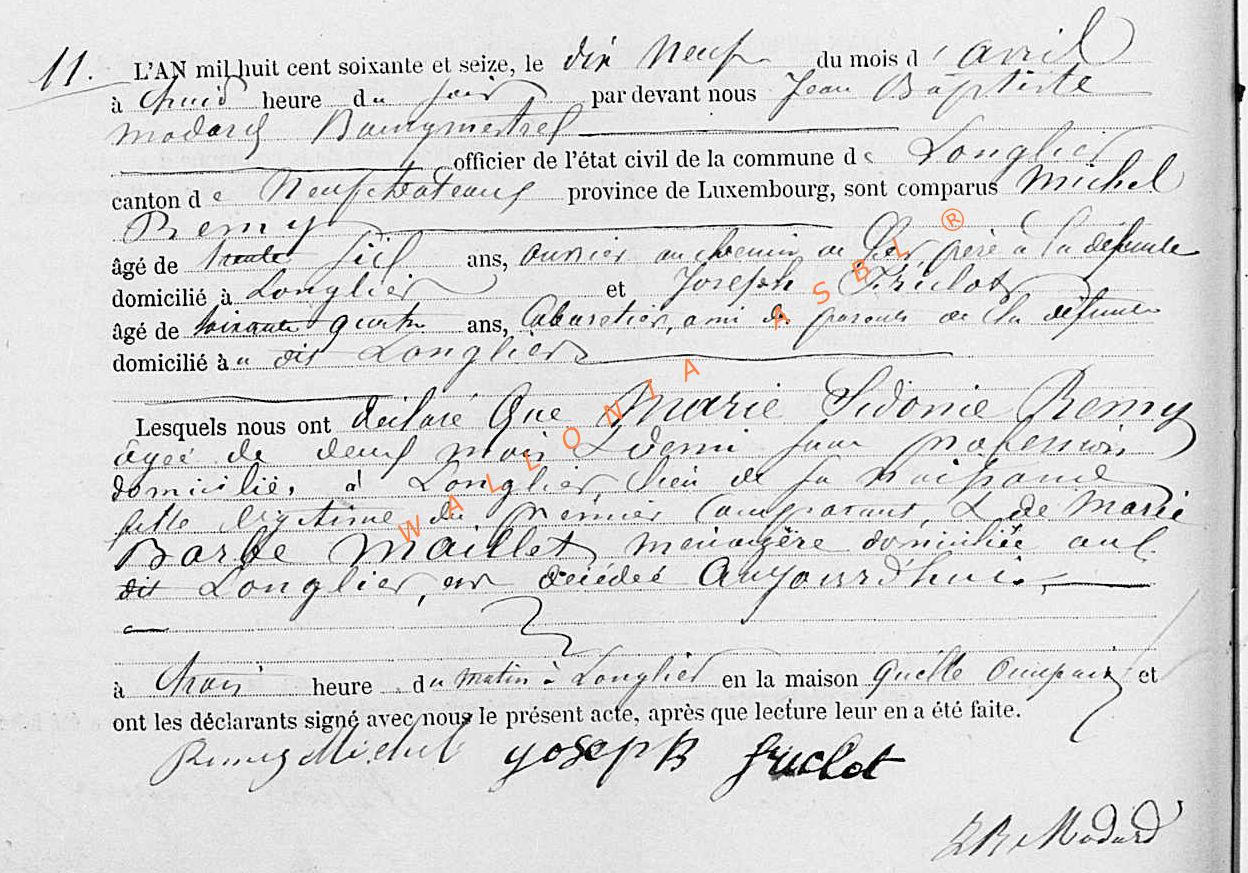 11. L'AN mil huit cent soixante et seize, le dix neuf du mois d'avril
à heure du soir par devant nous Jean Baptiste
modard Bourgmestre
officier de l'état civil de la commune de Longlier
canton de Neufchateau province de Luxembourg, sont comparus Michel
Remy
âgé de trente six ans, ouvrier au chemin de fer père à la défunte
domicilié à Longlier et Joseph Fruclot
âgé de soixante quatre ans, Cabaretier, ami des parents de la défunte
domicilié à u dit Longlier
Lesquels nous ont déclaré Que Marie Sidonie Remy
agée de deux mois & demi sans profession
domiciliée à Longlier, lieu de sa naissance
fille légitime du premier Comparant & de Marie
Barbe Maillet, ménagère domiciliée au
dit Longlier, est décédée Aujourd'hui
à heure du matin à Longlier en la maison quelle occupait et
ont les déclarants signé avec nous le présent acte, après que lecture leur en a été faite.
Remy Michel Joseph fruclot
JB Modard
WALLONIA ASBL ®